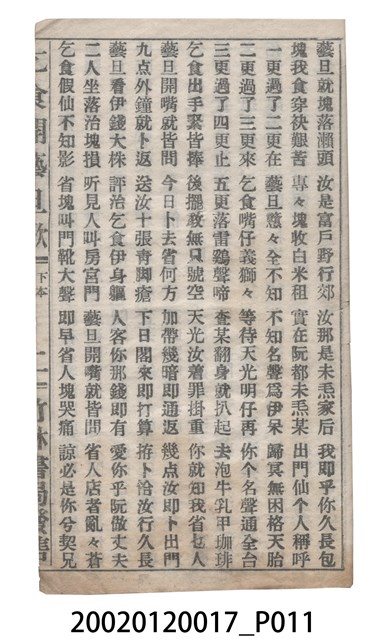 藝旦就塊落瀨頭　汝是富戶野行郊　汝那是未𤆬家后　我即乎你久長包
塊我食穿袂艱苦　專々塊收白米租　實在阮都未𤆬某　出門仙個人稱呼
一更過了二更在　藝旦戇々全不知　不知名聲為伊呆　歸冥無困格天胎
二更過了三更來　乞食嘴仔義獅々　等待天光明仔再　你个名聲通全台
三更過了四更止　五更落雷鷄聲啼　查某翻身就扒起　去泡牛乳甲珈琲
乞食出手緊皆捧　後擺敢無只號空　天光汝着罪掛重　你就知我省乜人
藝旦開嘴就皆問　今日卜去省何方　加帶幾暗即通返　幾点汝即卜出門
九点外鐘就卜返　送汝十張青脚瘡　下日閣來即打算　拚卜恰汝行久長
藝旦看伊錢大株　評治乞食伊身軀　人客你那錢即有　愛你乎阮做丈夫
二人坐落治塊損　听見人叫房宮門　藝旦開嘴就皆問　省人店者亂々蒼
乞食假仙不知影　省塊叫門靴大聲　即早省人塊哭痛　諒必是你兮契兄
乞食開藝旦歌　下本　二　竹林書局發售
20020120017_P011